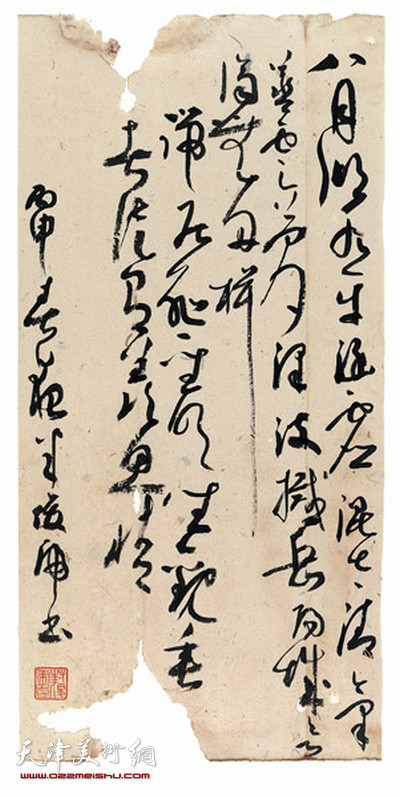 八月湖水平涵虚混太清气
蒸云梦泽波撼岳陽城欲
济無舟楫
端居耻聖明坐觀垂
者徒有羡魚情
丙申春 书
天津美術網
www.022meishu.com